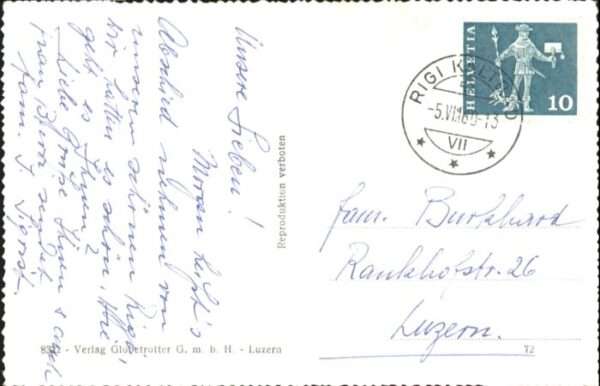 Unsere Lieben!
Morgen heisst's
Abschied nehmen von
unserem schönen Rigi,
wir hatten es schön. Wie
geht es Ihnen?
Liebe Grüsse Ihnen & auch
Frau
Fam. J. Sigrist.
Reproduktion verboten
8312 - Verlag Globetrotter G. m. b. H. - Luzern
HELVETIA
10
RIGI KALTBAD
VII
Fam. Burkhard
Rankhofstr. 26
Luzern.
72